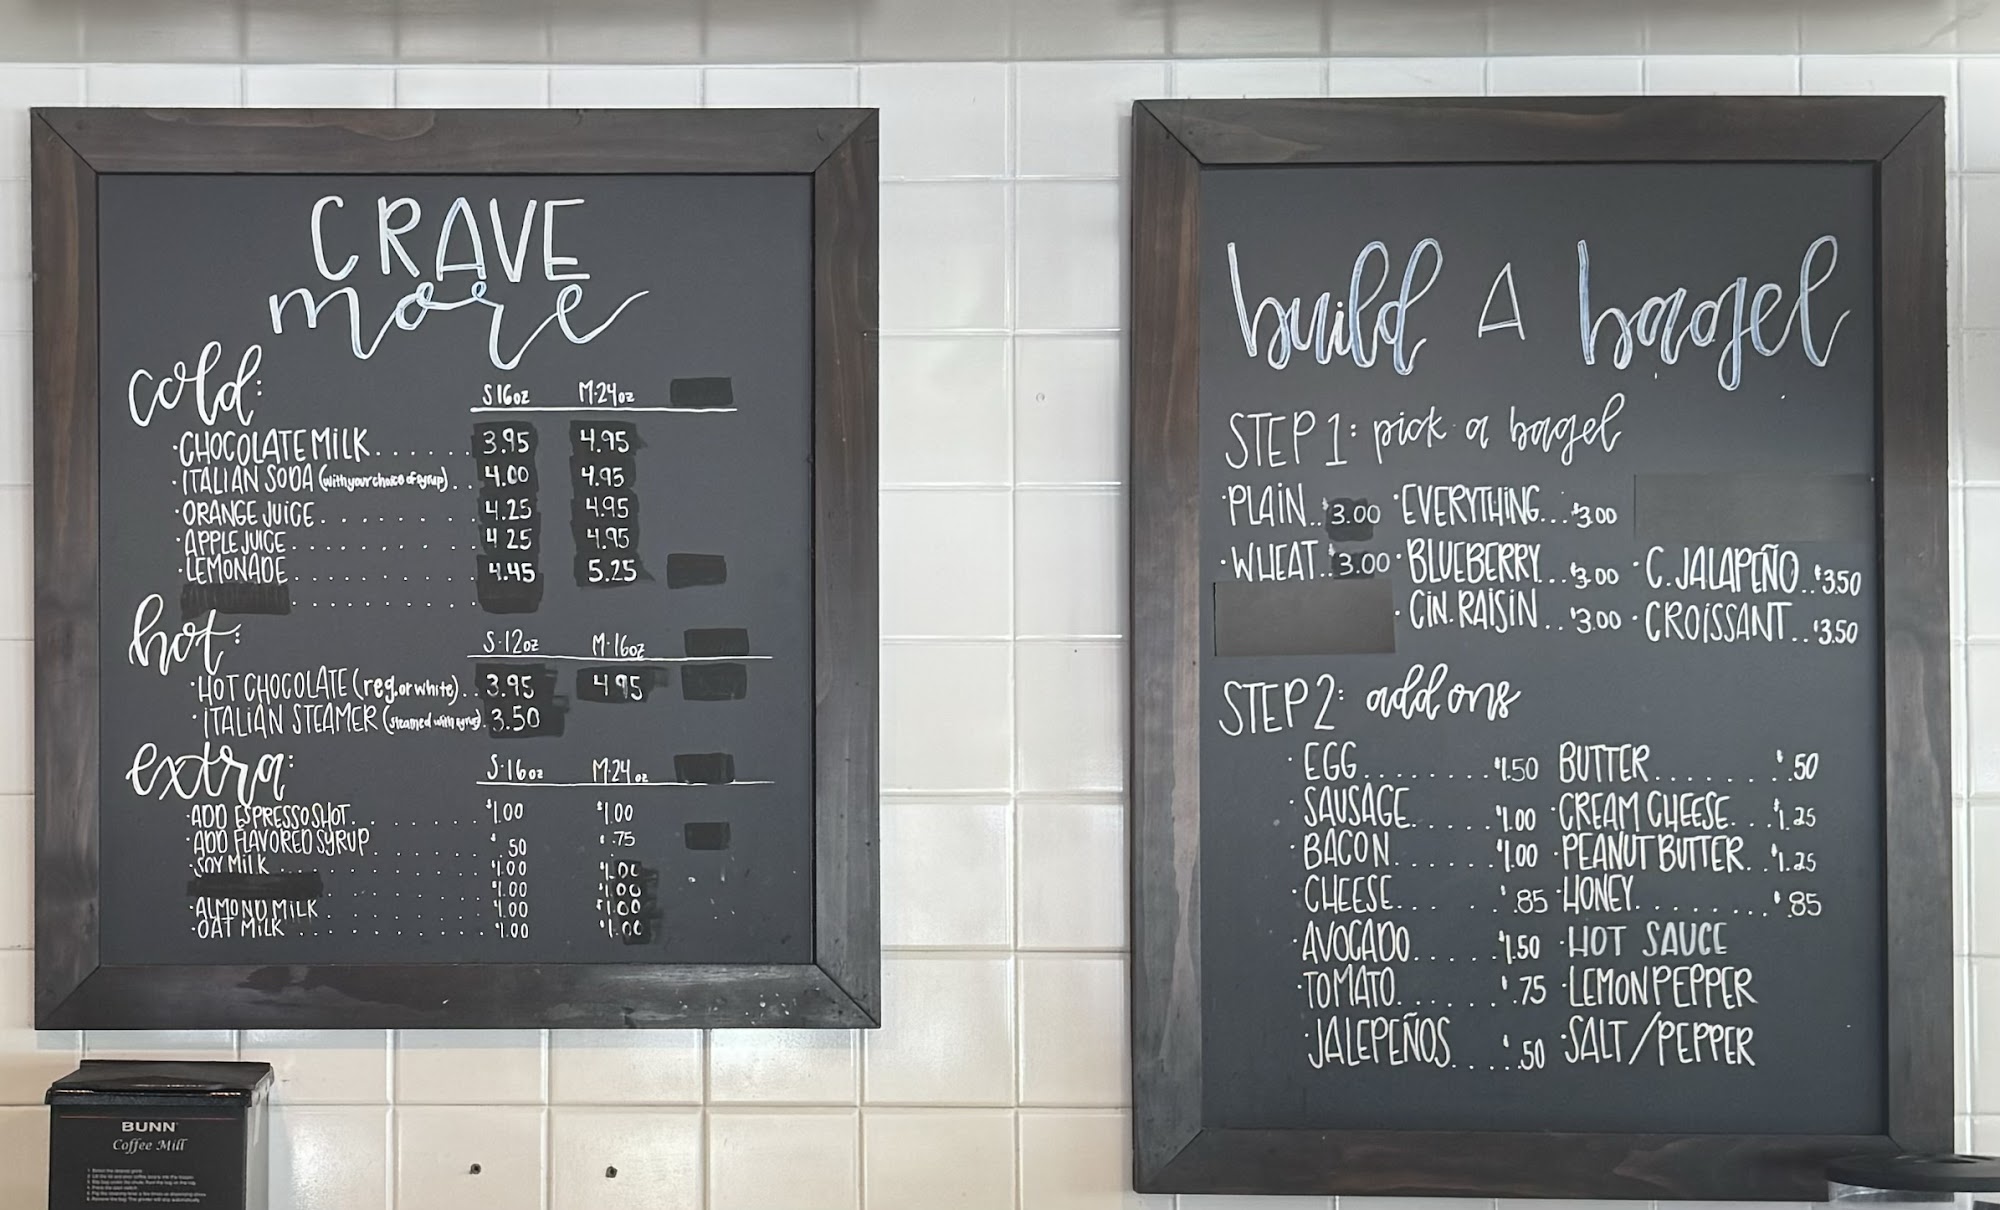 CRAVE
more
cold:
S 16oz M·24oz
·CHOCOLATE MILK...... 3.95 4.95
·ITALIAN SODA (with your choice of syrup).. 4.00 4.95
·ORANGE JUICE......... 4.25 4.95
·APPLE JUICE.......... 4 25 4.95
·LEMONADE.......... 4.45 5.25
hot:
S·12oz M·16oz
·HOT CHOCOLATE (reg. or white).. 3.95 4 95
·ITALIAN STEAMER (steamed with syrup). 3.50
extra:
S·16oz M·24oz
·ADD ESPRESSO SHOT....... $1.00 $1.00
·ADD FLAVORED SYRUP...... $.50 $.75
·SOY MILK.......... $1.00 $1.00
$1.00 $1.00
·ALMOND MILK....... $1.00 $1.00
·OAT MILK.......... $1.00 $1.00
BUNN
Coffee Mill
build A bagel
STEP 1: pick a bagel
·PLAIN..$3.00 ·EVERYTHING...$3.00
·WHEAT..$3.00 ·BLUEBERRY...$3.00 ·C. JALAPEÑO..$3.50
·CIN. RAISIN..$3.00 ·CROISSANT..$3.50
STEP 2: add ons
·EGG........$1.50 BUTTER.......$.50
·SAUSAGE.....$1.00 ·CREAM CHEESE...$1.25
·BACON......$1.00 ·PEANUT BUTTER..$1.25
·CHEESE....$.85 ·HONEY........$.85
·AVOCADO.....$1.50 ·HOT SAUCE
·TOMATO......$.75 ·LEMON PEPPER
·JALEPEÑOS.....$.50 ·SALT/PEPPER